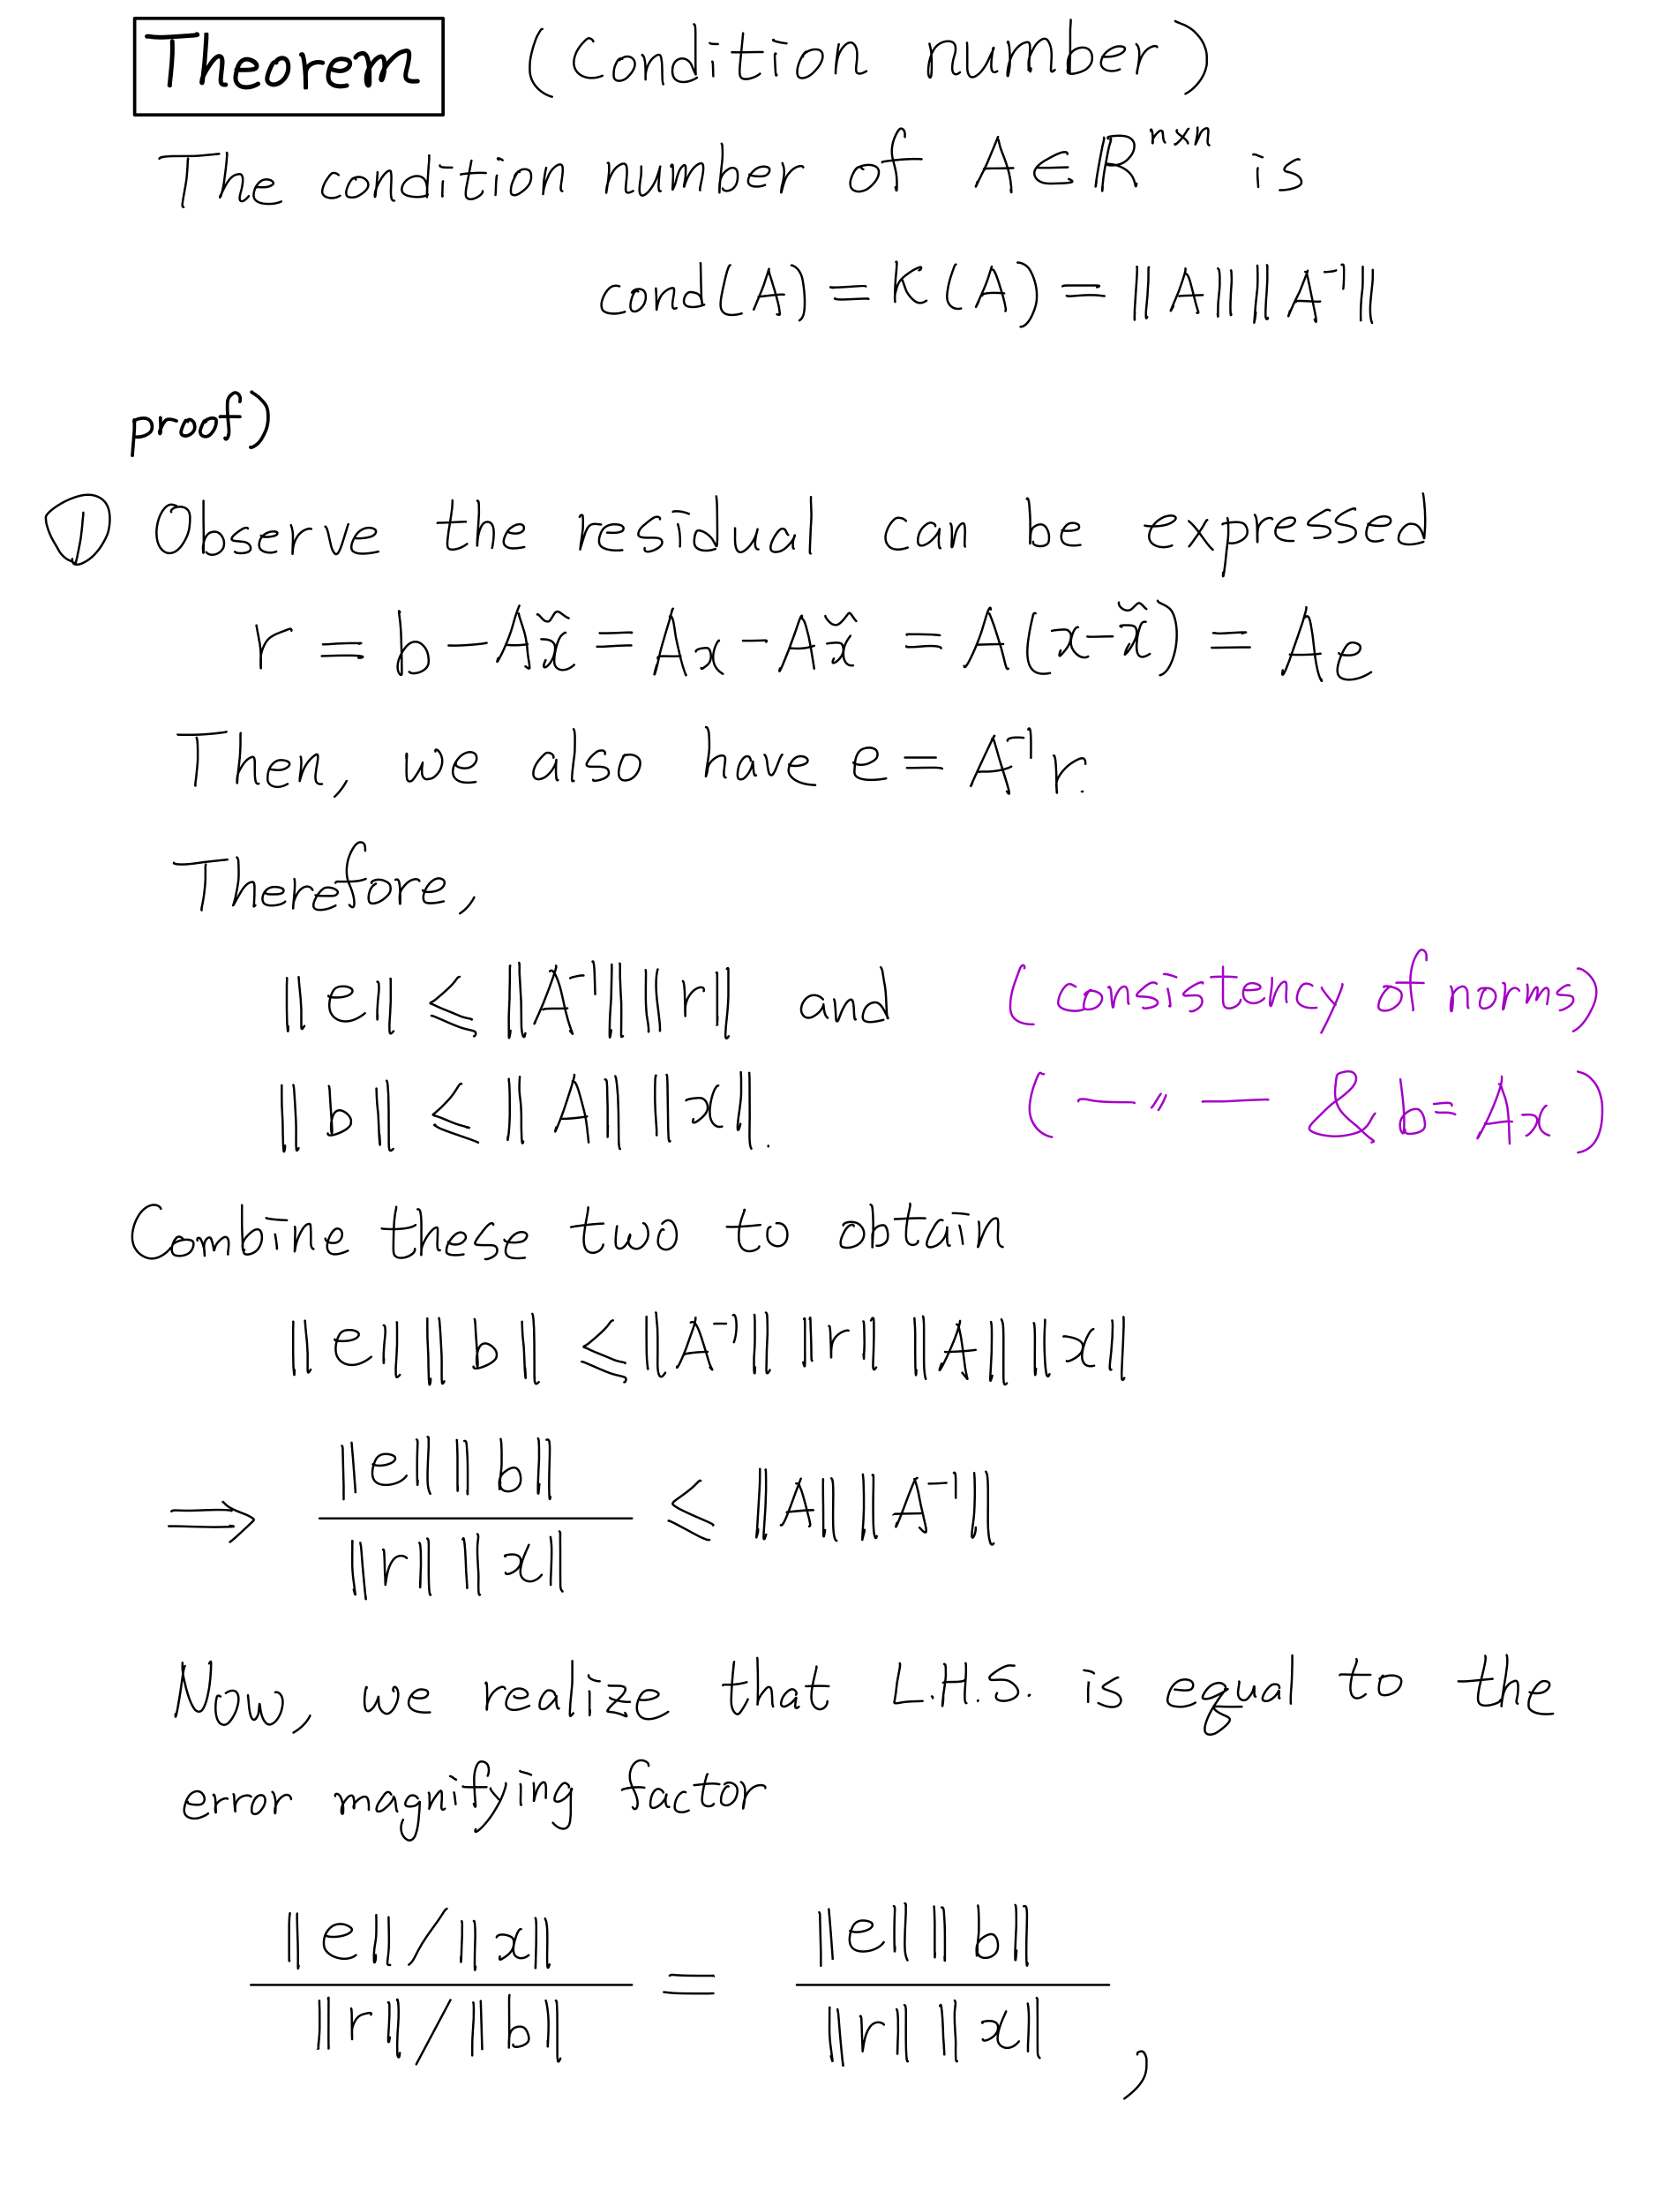 Theorem (Condition number)
The condition number of A∈R^{n×n} is
cond(A) = K(A) = ||A|| ||A⁻¹||
proof)
① Observe the residual can be expressed
r = b - Ax̃ = Ax - Ax̃ = A(x - x̃) = Ae
Then, we also have e = A⁻¹r.
Therefore,
||e|| ≤ ||A⁻¹|| ||r|| and (consistency of norms)
||b|| ≤ ||A|| ||x||. ( — 〃 — & b = Ax )
Combine these two to obtain
||e|| ||b|| ≤ ||A⁻¹|| ||r|| ||A|| ||x||
⇒ \frac{||e|| ||b||}{||r|| ||x||} ≤ ||A|| ||A⁻¹||
Now, we realize that L.H.S. is equal to the
error magnifying factor
\frac{||e|| / ||x||}{||r|| / ||b||} = \frac{||e|| ||b||}{||r|| ||x||} ,